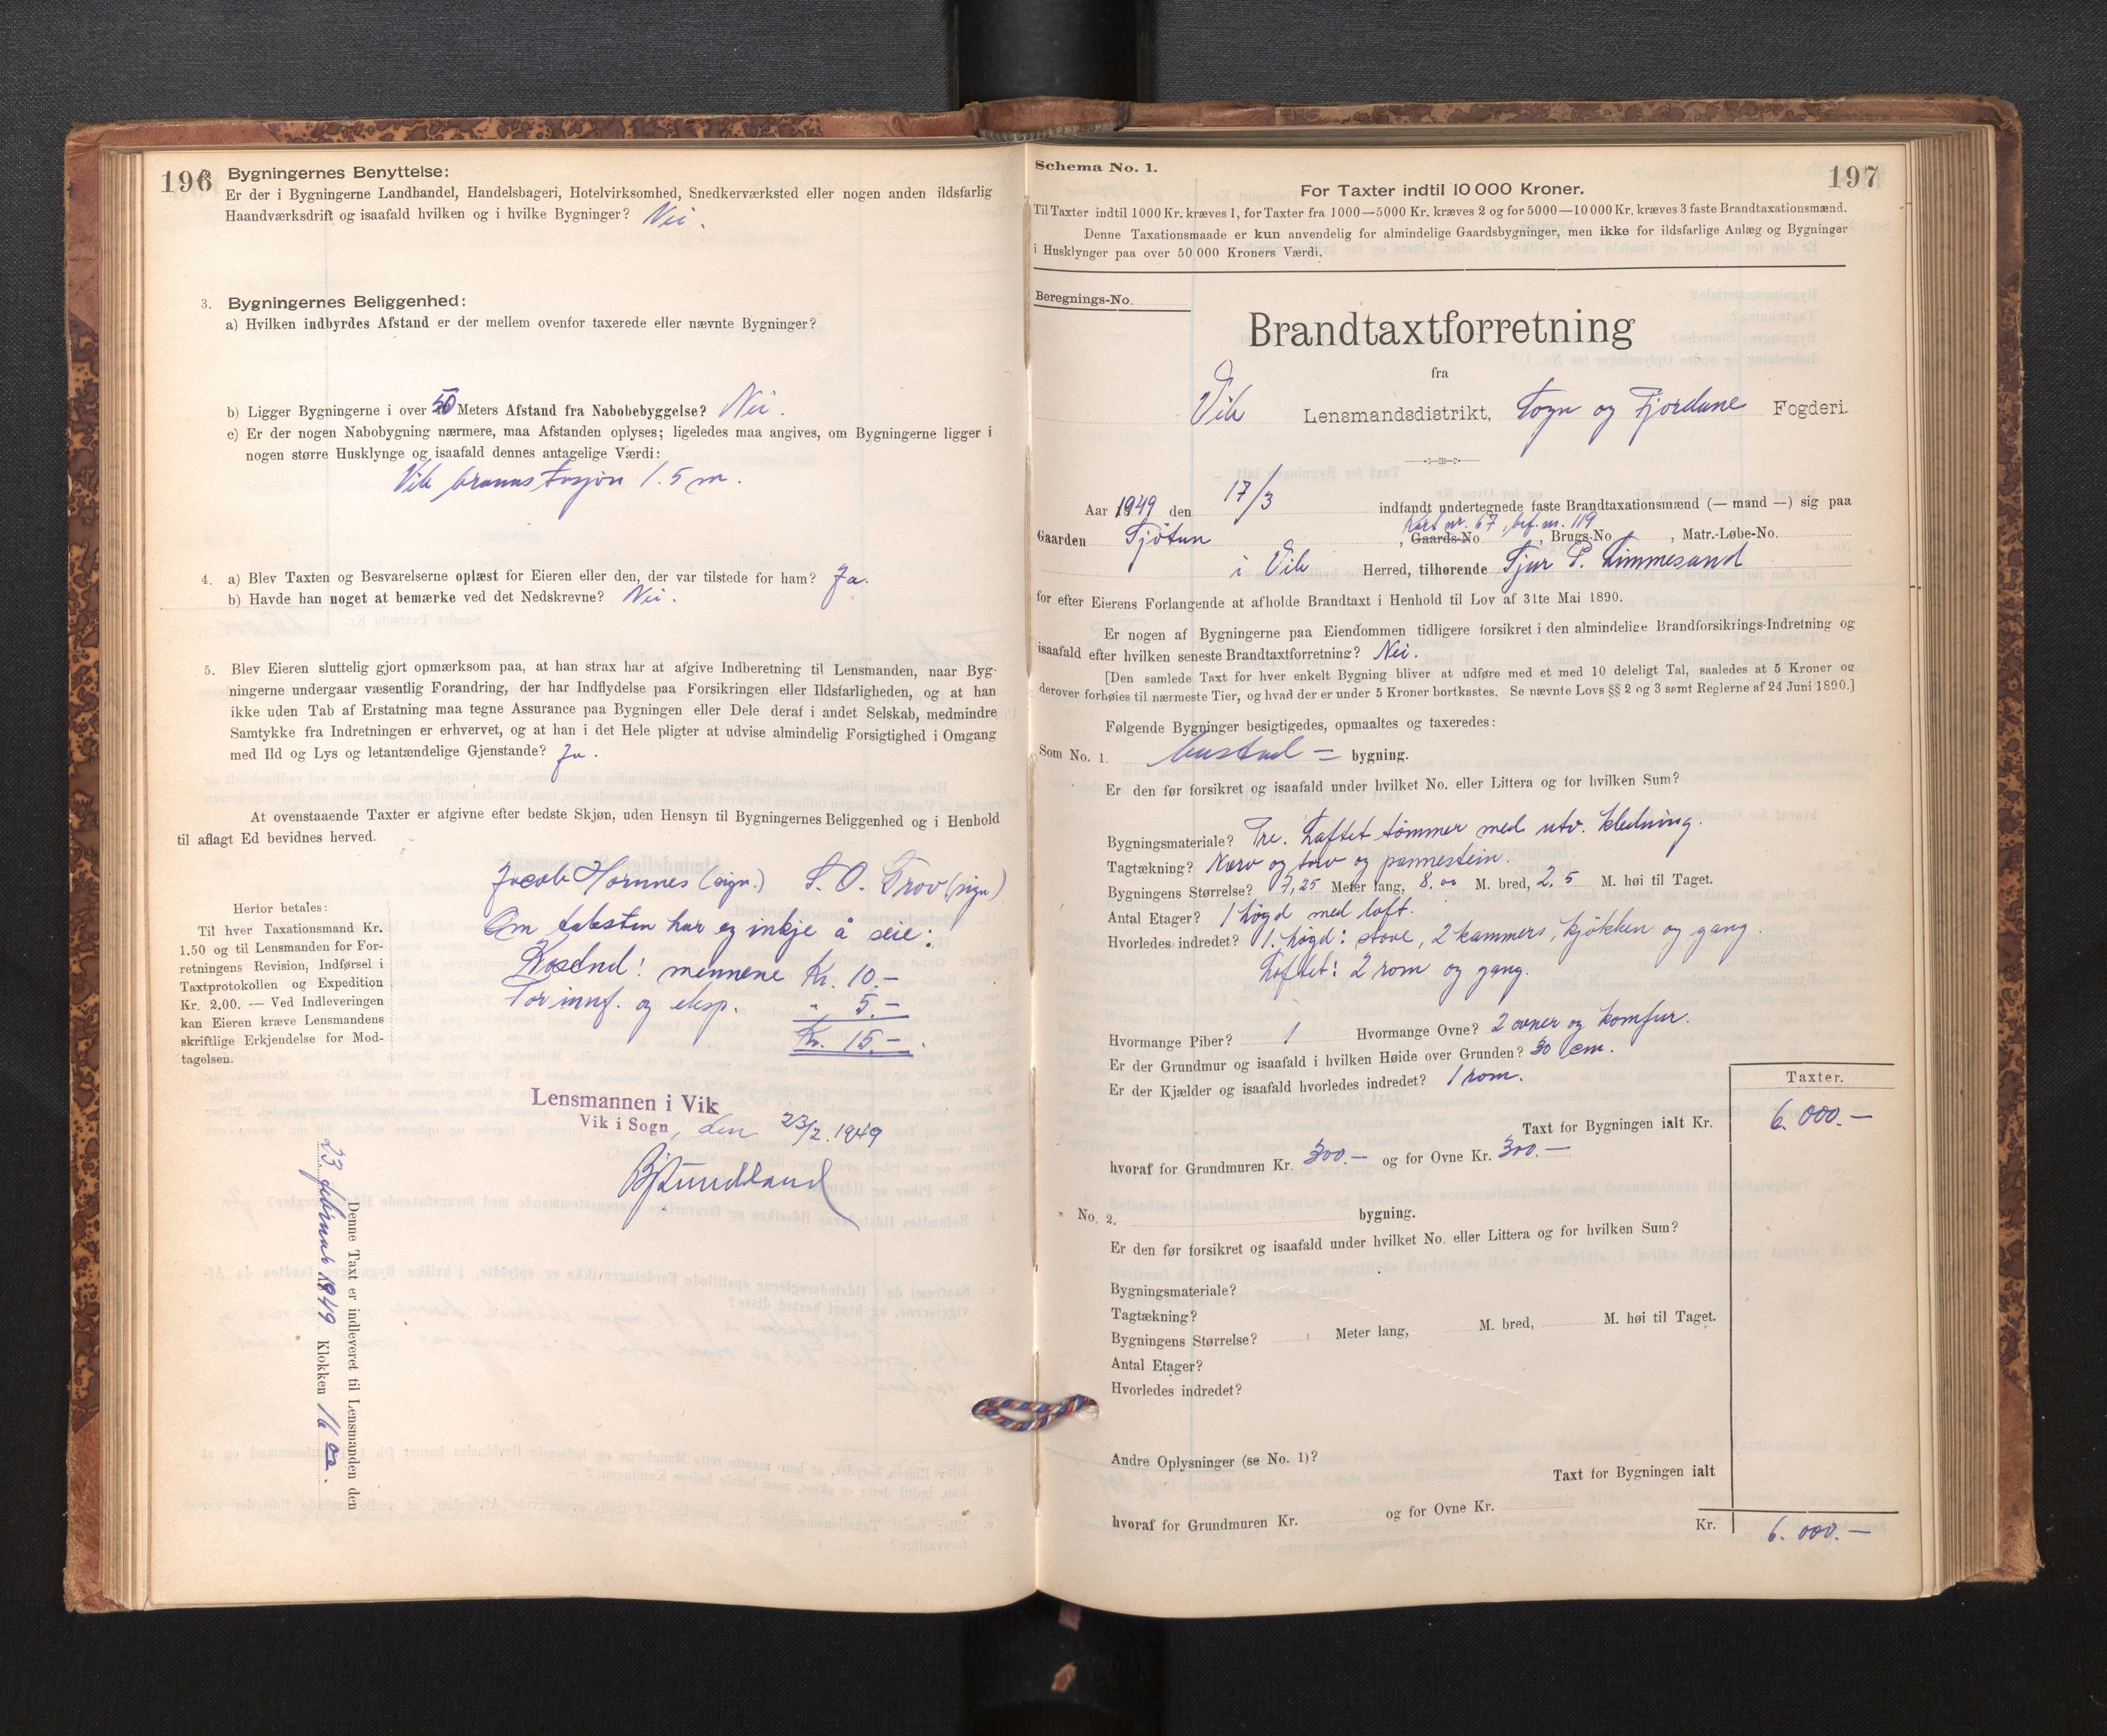 196
Bygningernes Benyttelse:
Er der i Bygningerne Landhandel, Handelsbageri, Hotelvirksomhed, Snedkerværksted eller nogen anden ildsfarlig
Haandværksdrift og isaafald hvilken og i hvilke Bygninger? Nei.
3. Bygningernes Beliggenhed:
a) Hvilken indbyrdes Afstand er der mellem ovenfor taxerede eller nævnte Bygninger?
b) Ligger Bygningerne i over 50 Meters Afstand fra Nabobebyggelse? Nei.
c) Er der nogen Nabobygning nærmere, maa Afstanden oplyses; ligeledes maa angives, om Bygningerne ligger i
nogen større Husklynge og isaafald dennes antagelige Værdi:
Vik brannstasjon 1.5 m.
4. a) Blev Taxten og Besvarelserne oplæst for Eieren eller den, der var tilstede for ham? Ja.
b) Havde han noget at bemærke ved det Nedskrevne? Nei.
5. Blev Eieren sluttelig gjort opmærksom paa, at han strax har at afgive Indberetning til Lensmanden, naar Byg-
ningerne undergaar væsentlig Forandring, der har Indflydelse paa Forsikringen eller Ildsfarligheden, og at han
ikke uden Tab af Erstatning maa tegne Assurance paa Bygningen eller Dele deraf i andet Selskab, medmindre
Samtykke fra Indretningen er erhvervet, og at han i det Hele pligter at udvise almindelig Forsigtighed i Omgang
med Ild og Lys og letantændelige Gjenstande? Ja.
At ovenstaaende Taxter er afgivne efter bedste Skjøn, uden Hensyn til Bygningernes Beliggenhed og i Henhold
til aflagt Ed bevidnes herved.
Jacob Hornnes (sign.) S. O. Grov (sign)
Om taksten har eg inkje å seie:
Kostnd: mennene Kr. 10.-
For innf. og eksp. " 5.-
Kr. 15.-
Herfor betales:
Til hver Taxationsmand Kr.
1.50 og til Lensmanden for For-
retningens Revision, Indførsel i
Taxtprotokollen og Expedition
Kr. 2.00. — Ved Indleveringen
kan Eieren kræve Lensmandens
skriftlige Erkjendelse for Mod-
tagelsen.
Lensmannen i Vik
Vik i Sogn, den 23/2. 1949
Denne Taxt er indleveret til Lensmanden den
23 februar 1949 Klokken 16 00.
197
Schema No. 1.
For Taxter indtil 10 000 Kroner.
Til Taxter indtil 1000 Kr. kræves 1, for Taxter fra 1000—5000 Kr. kræves 2 og for 5000—10 000 Kr. kræves 3 faste Brandtaxationsmænd.
Denne Taxationsmaade er kun anvendelig for almindelige Gaardsbygninger, men ikke for ildsfarlige Anlæg og Bygninger
i Husklynger paa over 50 000 Kroners Værdi.
Beregnings-No.
Brandtaxtforretning
fra
Vik Lensmandsdistrikt, Sogn og Fjordane Fogderi.
Aar 1949 den 17/3 indfandt undertegnede faste Brandtaxationsmænd (— mand —) sig paa
Kart nr. 67, bef. nr. 119
Gaarden Tjötun, Gaards-No , Brugs-No , Matr.-Løbe-No.
i Vik Herred, tilhørende Sjur P. Limmesand
for efter Eierens Forlangende at afholde Brandtaxt i Henhold til Lov af 31te Mai 1890.
Er nogen af Bygningerne paa Eiendommen tidligere forsikret i den almindelige Brandforsikrings-Indretning og
isaafald efter hvilken seneste Brandtaxtforretning? Nei.
[Den samlede Taxt for hver enkelt Bygning bliver at udføre med et med 10 deleligt Tal, saaledes at 5 Kroner og
derover forhøies til nærmeste Tier, og hvad der er under 5 Kroner bortkastes. Se nævnte Lovs §§ 2 og 3 samt Reglerne af 24 Juni 1890.]
Følgende Bygninger besigtigedes, opmaaltes og taxeredes:
Som No. 1. bustad = bygning.
Er den før forsikret og isaafald under hvilket No. eller Littera og for hvilken Sum?
Bygningsmateriale? Tre. Laftet tömmer med utv. kledning.
Tagtækning? Næver og torv og pannestein.
Bygningens Størrelse? 7,25 Meter lang, 8.00 M. bred, 2.5 M. høi til Taget.
Antal Etager? 1 högd med loft.
Hvorledes indredet? 1. högd: stove, 2 kammers, kjökken og gang.
Loftet: 2 rom og gang.
Hvormange Piber? 1 Hvormange Ovne? 2 ovner og komfur.
Er der Grundmur og isaafald i hvilken Høide over Grunden? 30 cm.
Er der Kjælder og isaafald hvorledes indredet? 1 rom.
Taxter.
Taxt for Bygningen ialt Kr. 6.000.—
hvoraf for Grundmuren Kr. 300.— og for Ovne Kr. 300.—
" No. 2. bygning.
Er den før forsikret og isaafald under hvilket No. eller Littera og for hvilken Sum?
Bygningsmateriale?
Tagtækning?
Bygningens Størrelse? Meter lang, M. bred, M. høi til Taget.
Antal Etager?
Hvorledes indredet?
Andre Oplysninger (se No. 1)?
Taxt for Bygningen ialt
hvoraf for Grundmuren Kr. og for Ovne Kr.
Kr. 6.000.—